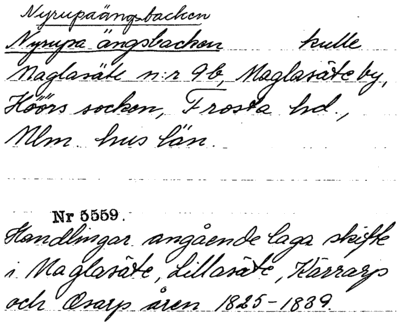 Nyrupaängsbacken
Nyrupa ängsbacken kulle
Maglasäte n:r 9b, Maglasäte by,
Höörs socken, Frosta hd.,
Mlm. hus län.
Nr 5559.
Handlingar angående laga skifte
i Maglasäte, Lillasäte, Kärrarp
och Osarp åren 1825-1839